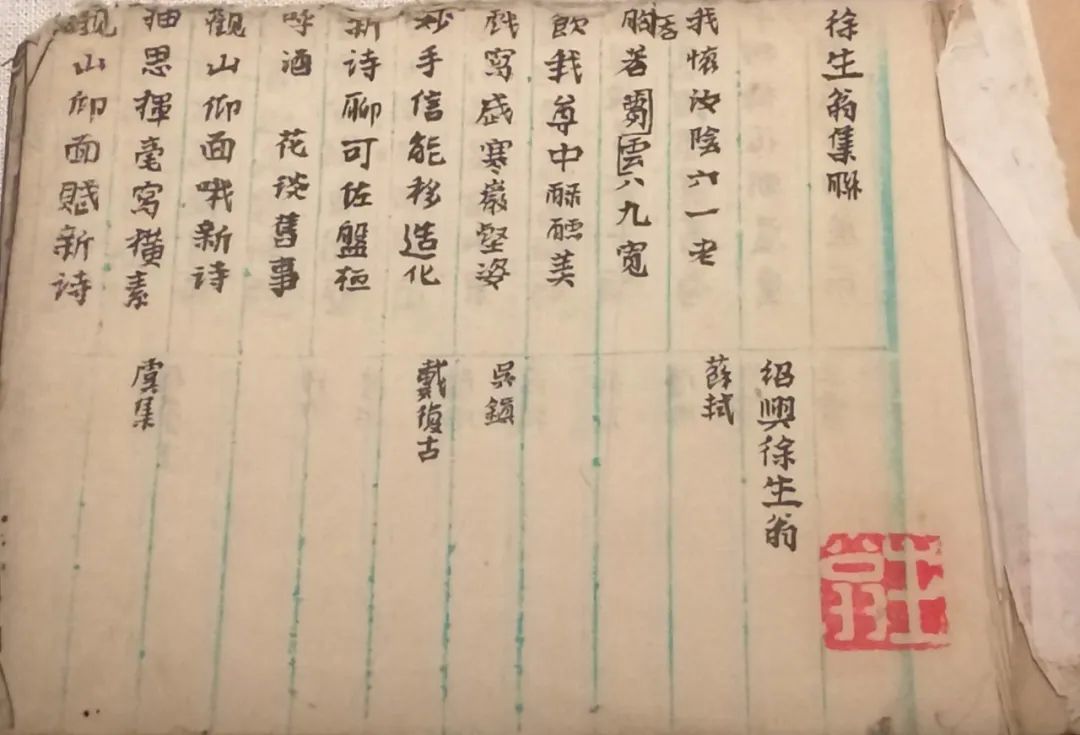 徐生翁集聯
紹興徐生翁
我懷汝陰六一老 蘇軾
胸著夢雲八九寬
飲我尊中醁醽美
戲寫歲寒巖壑姿 吳鎮
妙手信能移造化 戴復古
新詩聊可佐盤桓
呼酒 花談舊事
觀山仰面哦新詩
抽思揮毫寫橫素 虞集
觀山仰面賦新詩